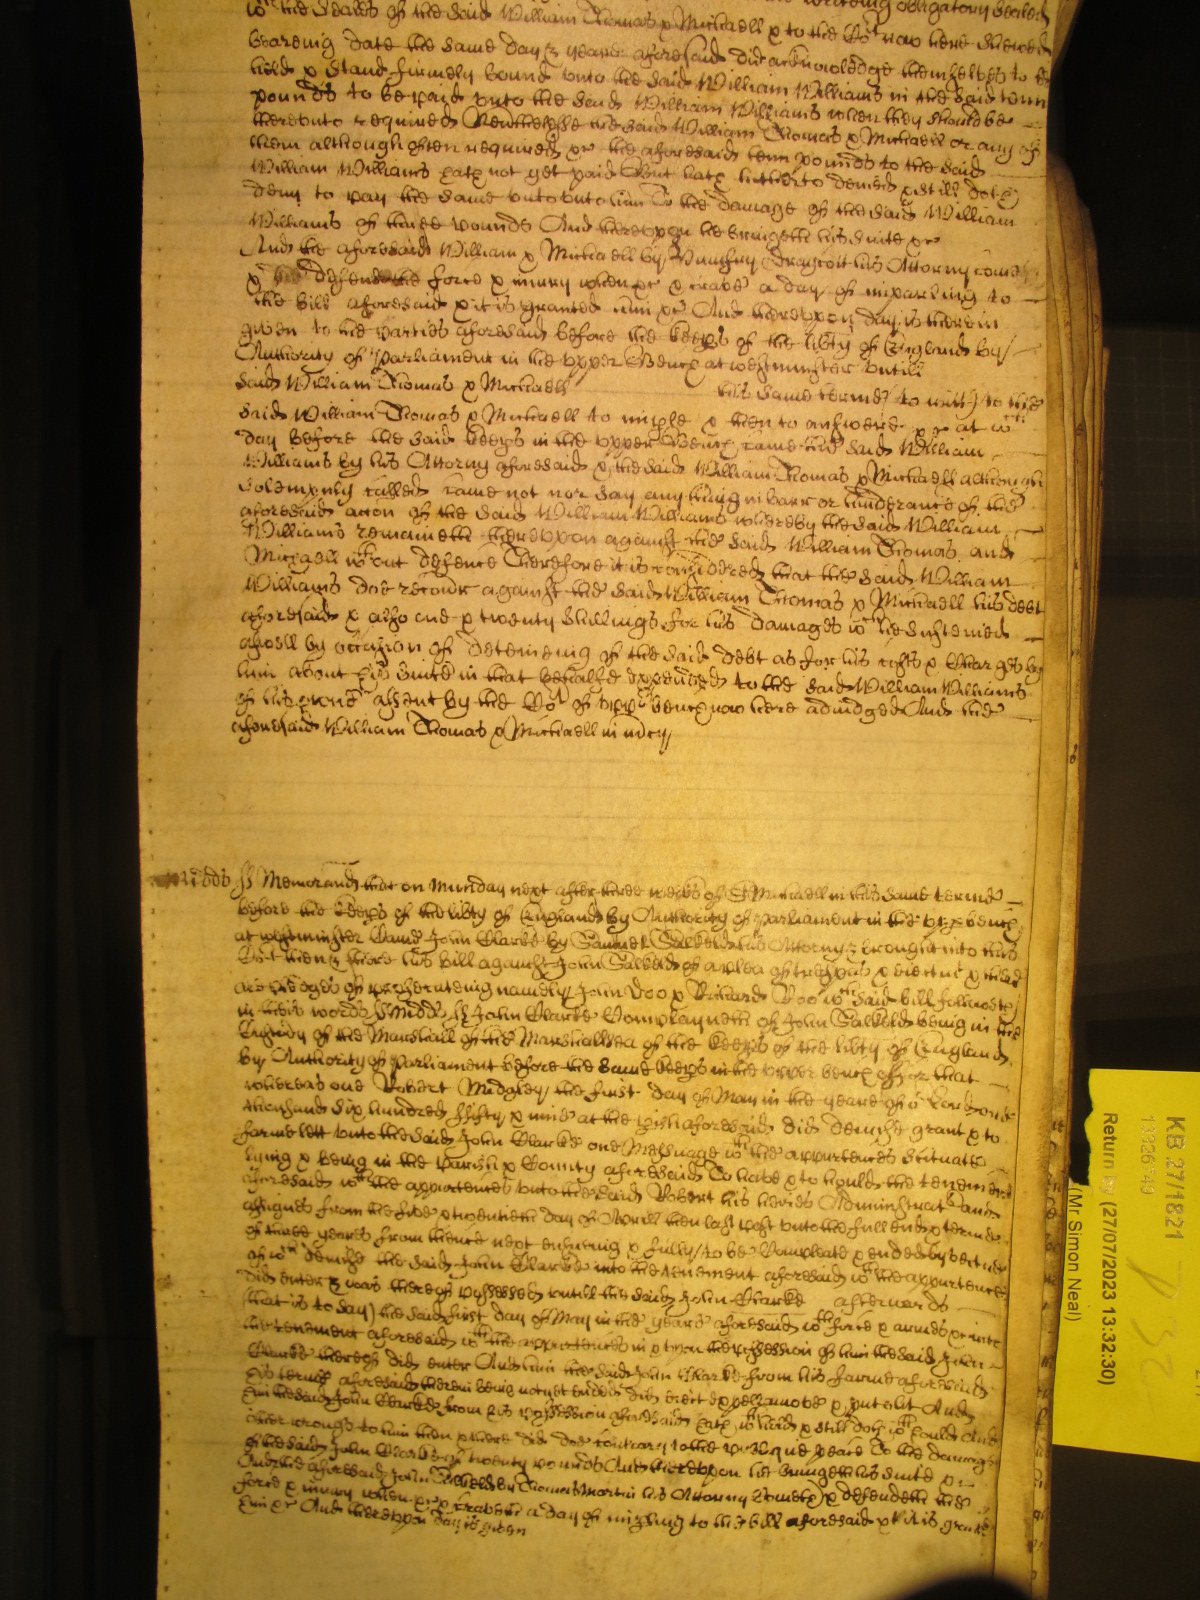 writing obligatory sealed
wth the Seales of the said William Thomas & Michaell & to the Cort now here shewed
beareing date the same day & yeare aforesaid did acknowledge themselves to be
held & stand firmely bound unto the said William Williams in the said tenn
pounds to be paid unto the said William Williams when they should be
thereunto required Neverthelesse the said William Thomas & Michaell or any of
them although often required &c the aforesaid tenn pounds to the said
William Williams hath not yet paid But hath hitherto denied & still doth
deny to pay the same unto unto him To the damage of the said William
Williams of three pounds And thereupon he bringeth his suite &c
And the aforesaid William & Michaell by Humfry Drayton his Attorny come
& defend the force & iniury when &c & crave a day of imparling to
the bill aforesaid & it is granted him &c And thereupon day is therein
given to the parties aforesaid before the keeps of the libty of England by
Authority of Parliament in the upper Bench at westminster untill
said William Thomas & Michaell this same terme (to witt) to the
said William Thomas & Michaell to imple & then to answere &c at wch
day before the said keeps in the upper Bench came the said William
Williams by his Attorny aforesaid & the said William Thomas & Michaell although
solemnely called came not nor say any thing in barr or hinderance of the
aforesaid accon of the said William Williams whereby the said William
Williams remaineth thereupon against the said William Thomas and
Michaell wthout defence Therefore it is considered that the said William
Williams doe recover against the said William Thomas & Michaell his debt
aforesaid & also one & twenty shillings for his damages wch he susteined
aswell by occasion of deteineing of the said debt as for his costs & Charges by
him about his suite in that behalfe expended to the said William Williams
of his owne assent by the Cort of uppr bench now here adiudged And the
aforesaid William Thomas & Michaell in mercy
Midds ss Memorand that on Munday next after three weeks of St Michaell in this same terme
before the keeps of the libty of England by Authority of Parliament in the uppr bench
at westminster Came John Clarke by Samuel Salkeld his Attorny & brought into the
Cort then & there his bill against John Salkeld of a plea of trespas & eiectmt & there
are pledges of prosecuteing namely John Doo & Richard Roo wch said bill followeth
in these words ss Midds ss John Clarke Complayneth of John Salkeld being in the
Custody of the Marshall of the Marshallsea of the keeps of the libty of England
by Authority of Parliament before the same keeps in the upper bench For that
whereas one Robert Midgley the first day of May in the yeare of or Lord one
thousand six hundred fifty & nine at the pish aforesaid did demise grant & to
farme lett unto the said John Clarke one Messuage wth the appurtences scituate
lying & being in the Parish & County aforesaid To have & to hould the tenement
aforesaid wth the appurtences unto the said Robert his heires Administrat and
assignes from the five & twentieth day of Aprill then last past unto the full end & terme
of three yeares from thence next ensueing & fully to be Compleate & ended by vertue
of wch demise the said John Clarke into the tenement aforesaid wth the appurtences
did enter & was thereof possessed untill the said John Clarke afterwards
that is to say) the said first day of May in the yeare aforesaid wth force & armes &c into
the tenement aforesaid wth the appurtences in & upon the possession of him the said John
Clarke thereof did enter And him the said John Clarke from his farme aforesaid
his terme aforesaid therein being not yet ended did eiect expell amove & put out And
him the said John Clarke from his possession aforesaid hath wthheld & still doth wthhould And
other wrongs to him then & there did doe contrary to the publique peace To the damage
of the said John Clarke of twenty pounds And thereupon he bringeth his suite &c
And the aforesaid John Salkeld by Thomas Martin his Attorny Cometh & defendeth the
force & iniury when &c & craveth a day of impling to the bill aforesaid & it is granted
him &c And thereupon day is given
KB 27/1821
Return by (27/07/2023 13:32:30)
(Mr Simon Neal)